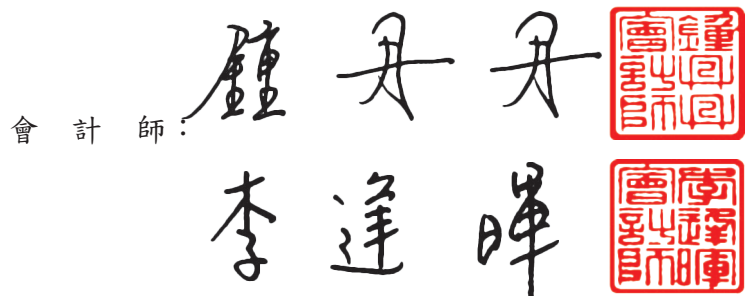 會計師：
鍾丹丹
鍾丹丹會計師
李逢暉
李逢暉會計師